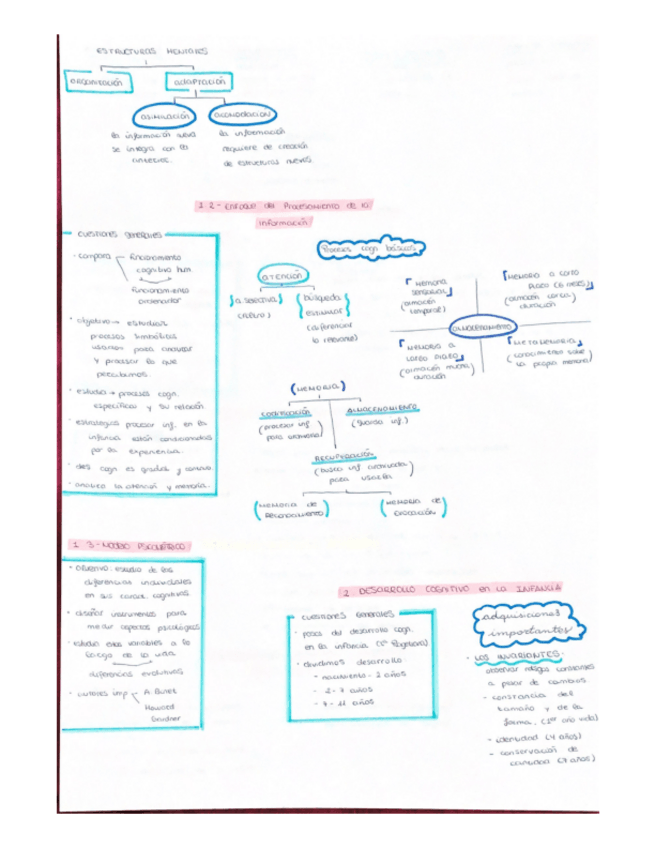 ESTRUCTURAS MENTALES
organización
adaptación
asimilación
acomodación
la información nueva
se integra con la
anterior.
la información
requiere de creación
de estructuras nuevas
1.2- Enfoque del Procesamiento de la
Información
CUESTIONES generales
· compara
funcionamiento
cognitivo hum.
funcionamiento
ordenador
· objetivo → estudiar
procesos simbólicos
usamos para
y procesar lo que
percibimos.
· estudia → procesos cogn.
específicos y su relación
· estrategias procesar inf. en la
infancia están condicionadas
por la experiencia.
· des cogn es gradual y continuo.
· analiza la atención y memoria.
Procesos cogn básicos
atención
a selectiva
búsqueda
estímulos
(diferenciar
lo relevante)
memoria
sensorial
(almacén
temporal)
Memoria a corto
plazo
(almacén corta
duración)
almacenamiento
Memoria a
largo plazo
(almacén mucha
duración)
metamemoria
(conocimiento sobre
la propia memoria)
(MEMORIA)
codificación
(procesar inf
para guardarla)
ALMACENAMIENTO
(guarda inf.)
RECUPERACIÓN
(busca inf archivada
para usarla)
(Memoria de
Reconocimiento)
(Memoria de
evocación)
1.3- Modelo PSICOMÉTRICO
· Objetivo: estudio de las
diferencias individuales
en sus caract. cognitivas
· diseñar instrumentos para
medir aspectos psicológicos
· estudia estas variables a lo
largo de la vida
diferencias evolutivas
· autores imp
A. Binet
Howard
Gardner
2 DESARROLLO COGNITIVO en la INFANCIA
cuestiones generales
· pasos del desarrollo cogn.
en la infancia
· dividimos desarrollo
- nacimiento - 2 años
- 2 - 7 años
- 7 - 11 años
adquisiciones
importantes
· LOS INVARIANTES:
observar rasgos constantes
a pesar de cambios
- constancia del
tamaño y de la
forma. (1er año vida)
- identidad (4 años)
- conservación de
cantidad (7 años)